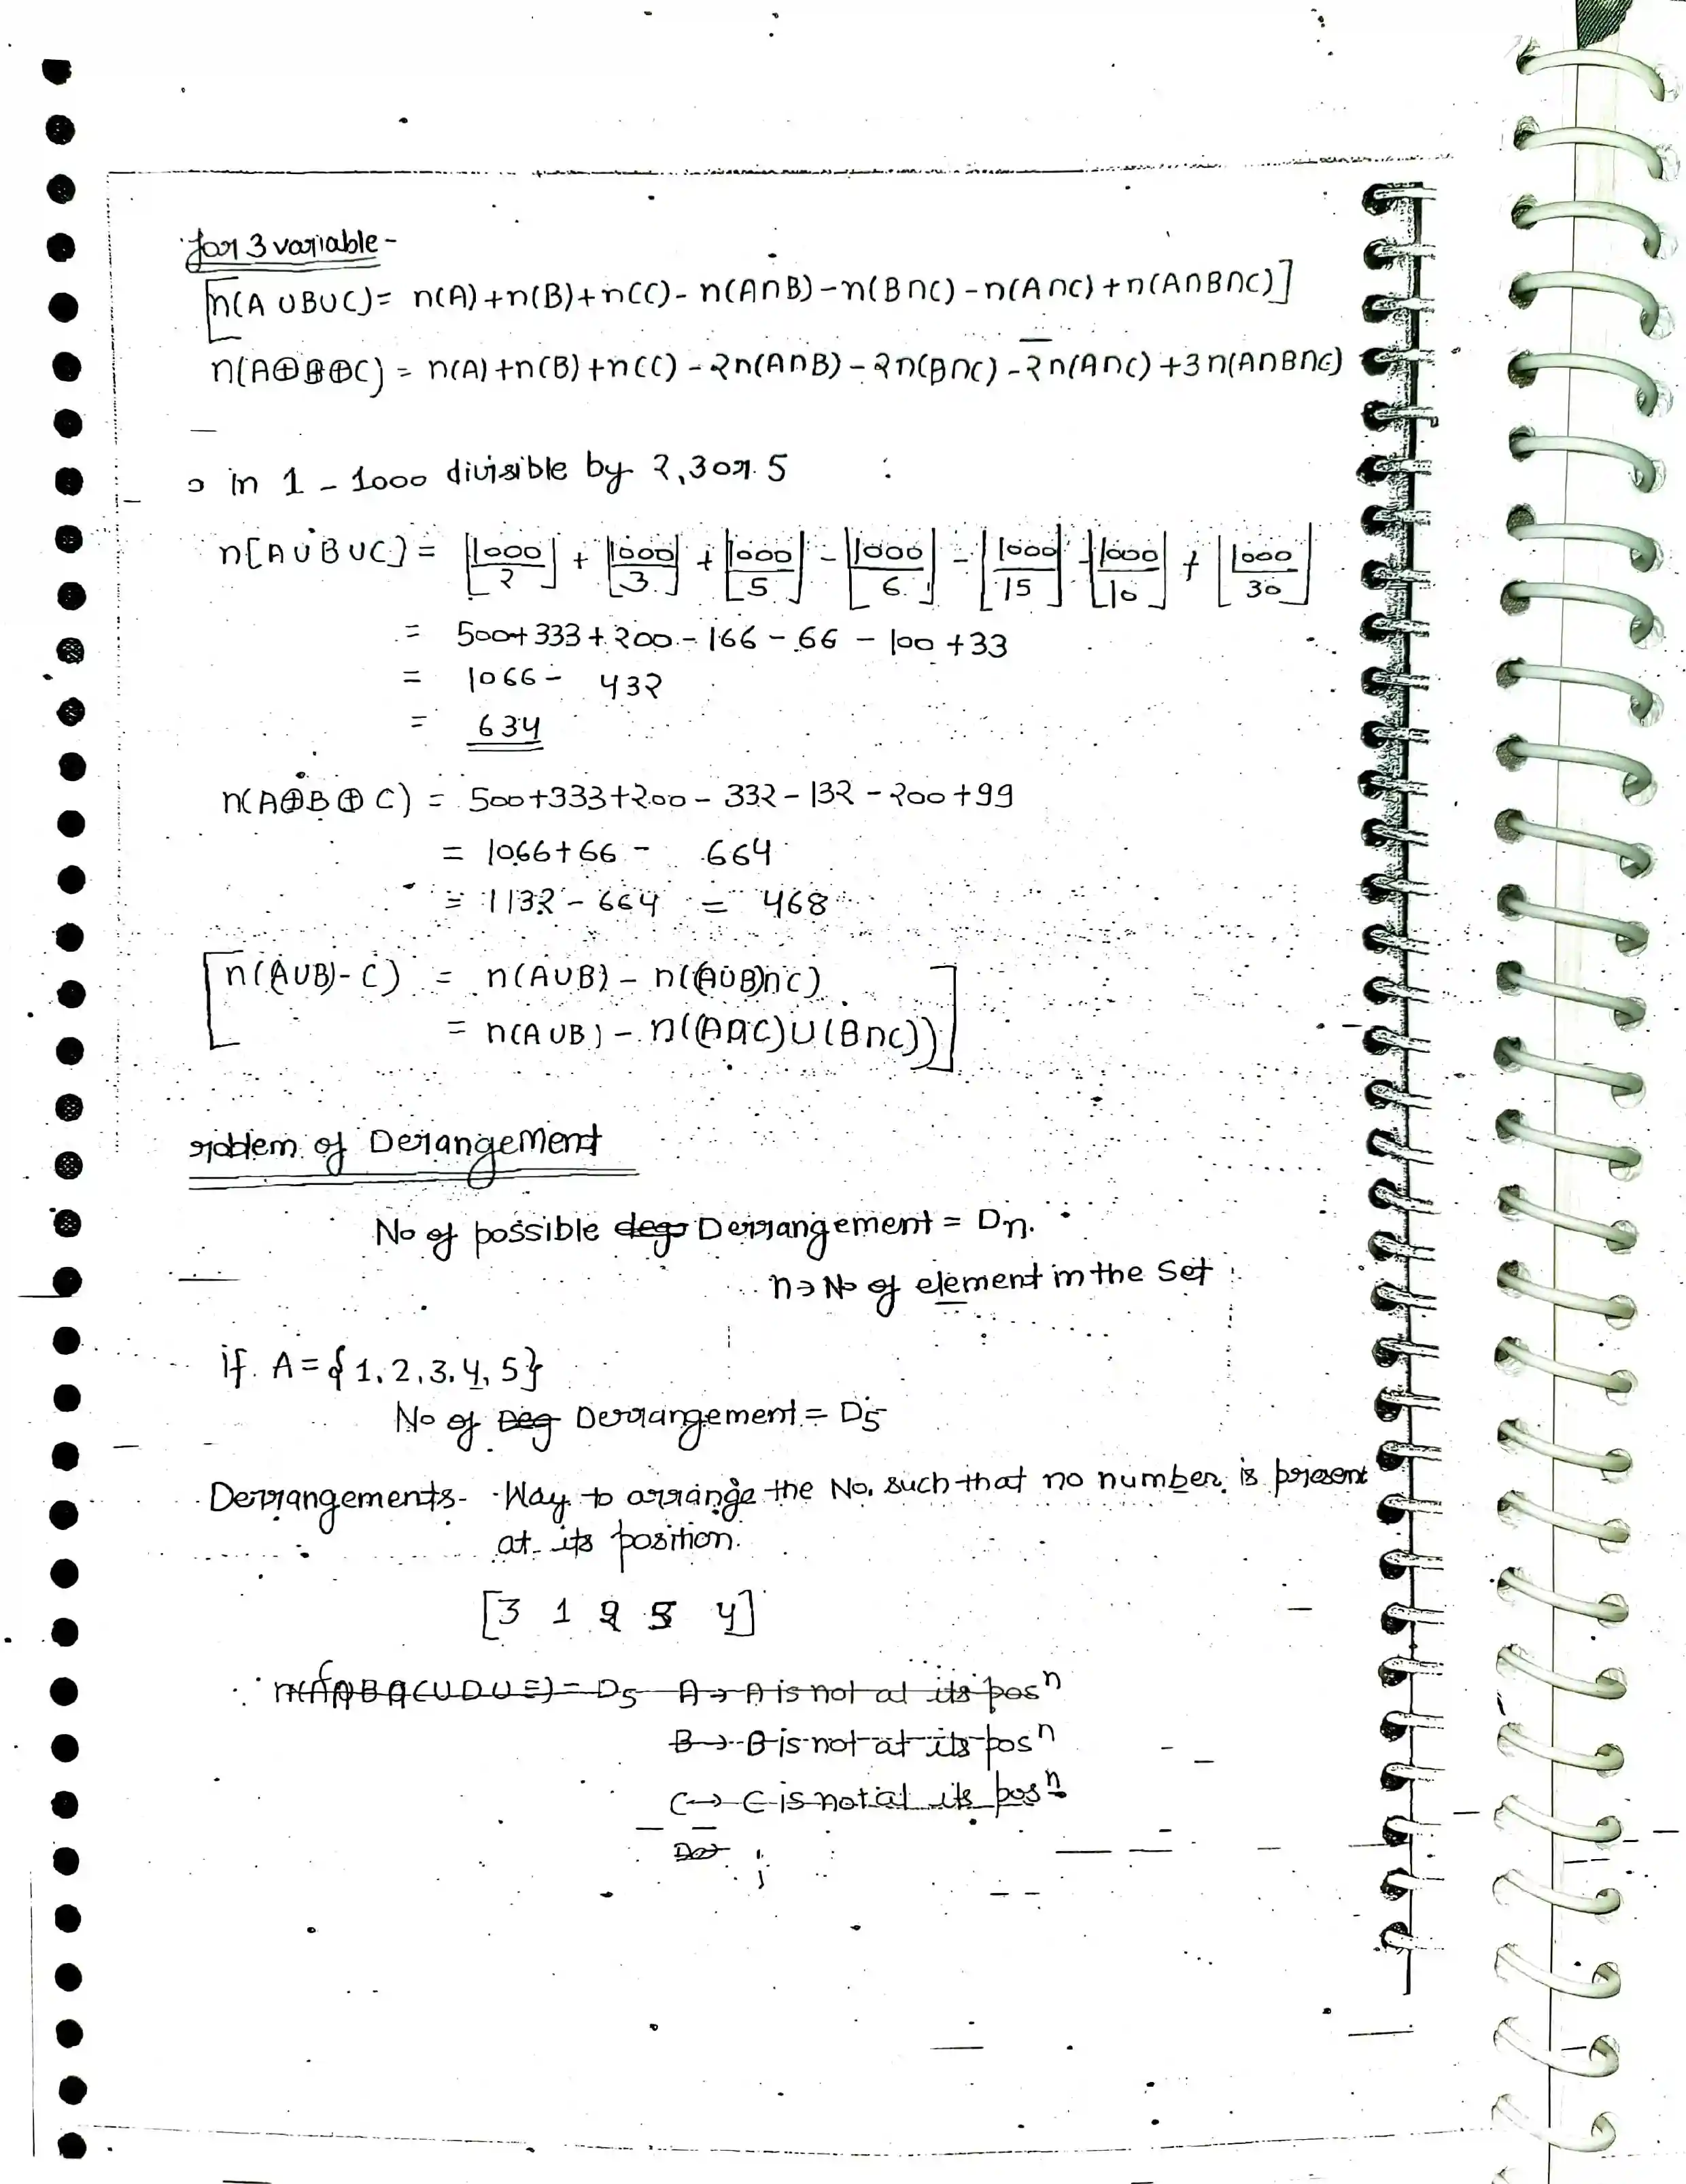 for 3 variable -
[n(A ∪ B ∪ C) = n(A) + n(B) + n(C) - n(A∩B) - n(B∩C) - n(A∩C) + n(A∩B∩C)]
n(A⊕B⊕C) = n(A) + n(B) + n(C) - 2n(A∩B) - 2n(B∩C) - 2n(A∩C) + 3n(A∩B∩C)
→ in 1 - 1000 divisible by 2,3 or 5 :
n[A ∪ B ∪ C] = ⌊1000/2⌋ + ⌊1000/3⌋ + ⌊1000/5⌋ - ⌊1000/6⌋ - ⌊1000/15⌋ - ⌊1000/10⌋ + ⌊1000/30⌋
= 500+333+200-166-66-100+33
= 1066 - 432
= 634
n(A⊕B⊕C) = 500+333+200-332-132-200+99
= 1066+66 - 664
= 1132 - 664 = 468
[n(A∪B)-C) = n(A∪B) - n((A∪B)∩C)
= n(A∪B) - n((A∩C)∪(B∩C))]
roblem of Derangement
No of possible deg Derrangement = Dn.
n → No of element in the Set
if A = {1,2,3,4,5}
No of Deg Derrangement = D5
Derrangements - Way to arrange the No. such that no number is present
at its position.
[3 1 2 5 4]
= D5 A → A is not at its posn
B → B is not at its posn
C → C is not at its posn
D →